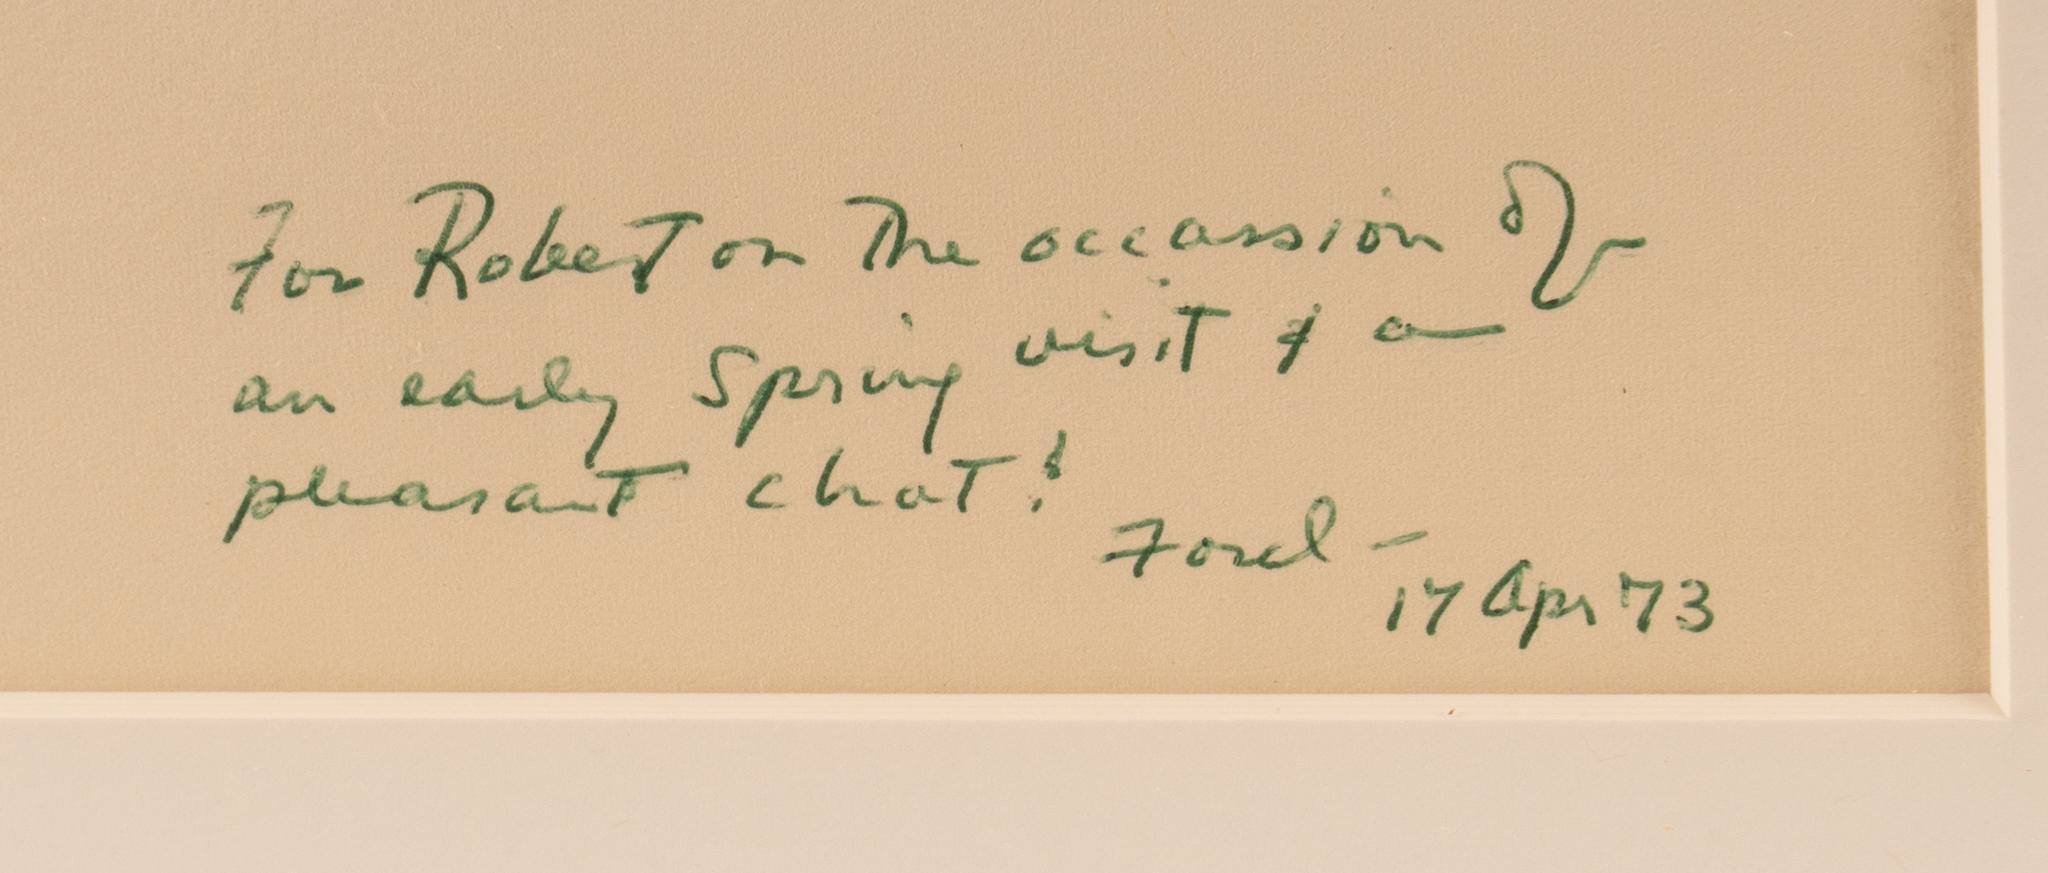 For Robert on The occassion of
an early Spring visit & a
pleasant chat!
Ford -
17 Apr 73